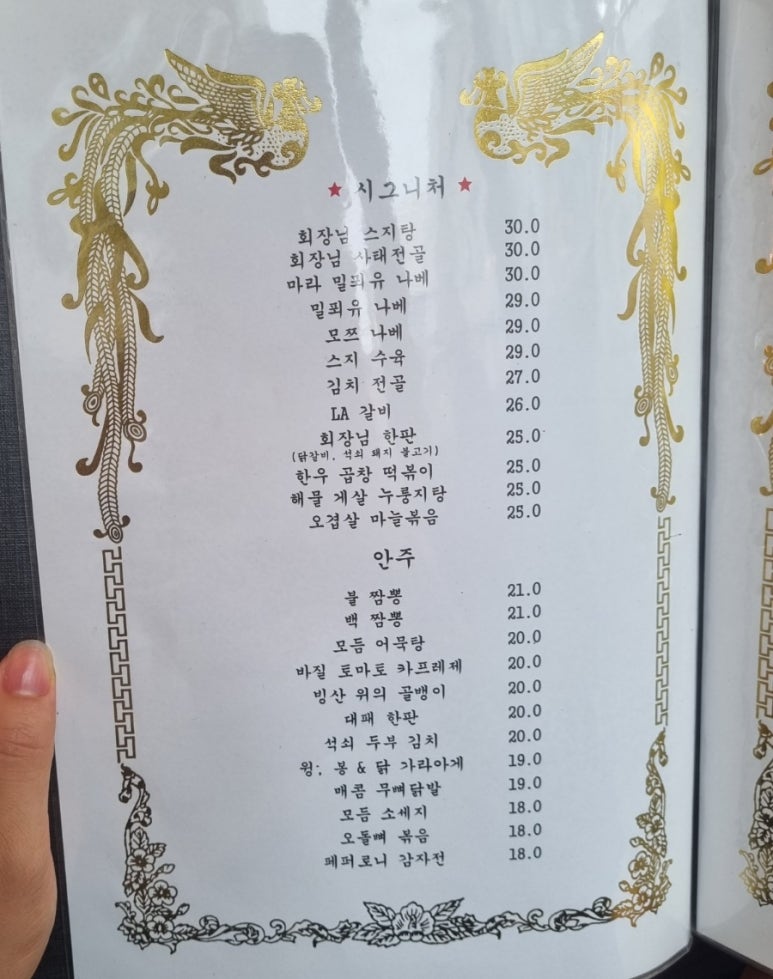 ★ 시그니처 ★
회장님 스지탕 30.0
회장님 사태전골 30.0
마라 밀푀유 나베 30.0
밀푀유 나베 29.0
모쯔 나베 29.0
스지 수육 29.0
김치 전골 27.0
LA 갈비 26.0
회장님 한판 25.0
(닭갈비, 석쇠 돼지 불고기)
한우 곱창 떡볶이 25.0
해물 게살 누룽지탕 25.0
오겹살 마늘볶음 25.0
안주
불 짬뽕 21.0
백 짬뽕 21.0
모듬 어묵탕 20.0
바질 토마토 카프레제 20.0
빙산 위의 골뱅이 20.0
대패 한판 20.0
석쇠 두부 김치 20.0
윙; 봉 & 닭 가라아게 19.0
매콤 무뼈닭발 19.0
모듬 소세지 18.0
오돌뼈 볶음 18.0
페퍼로니 감자전 18.0